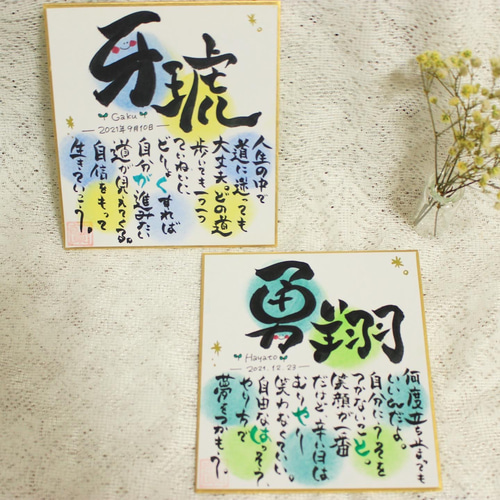 牙琥
Gaku
2021年9月10日
人生の中で
道に迷っても
大丈夫。どの道
歩いても一つ一つ
ていねいに、
どりょくすれば
自分が進みたい
道が見えてくる。
自信をもって
生きていこう。
勇翔
Hayato
2021.12.23
何度立ち止っても
いいんだよ。
自分にうそを
つかないこと。
笑顔が一番
だけど、辛い日は
むりやり
笑わなくていい。
自由なはっそう、
やり方で
夢をつかもう。